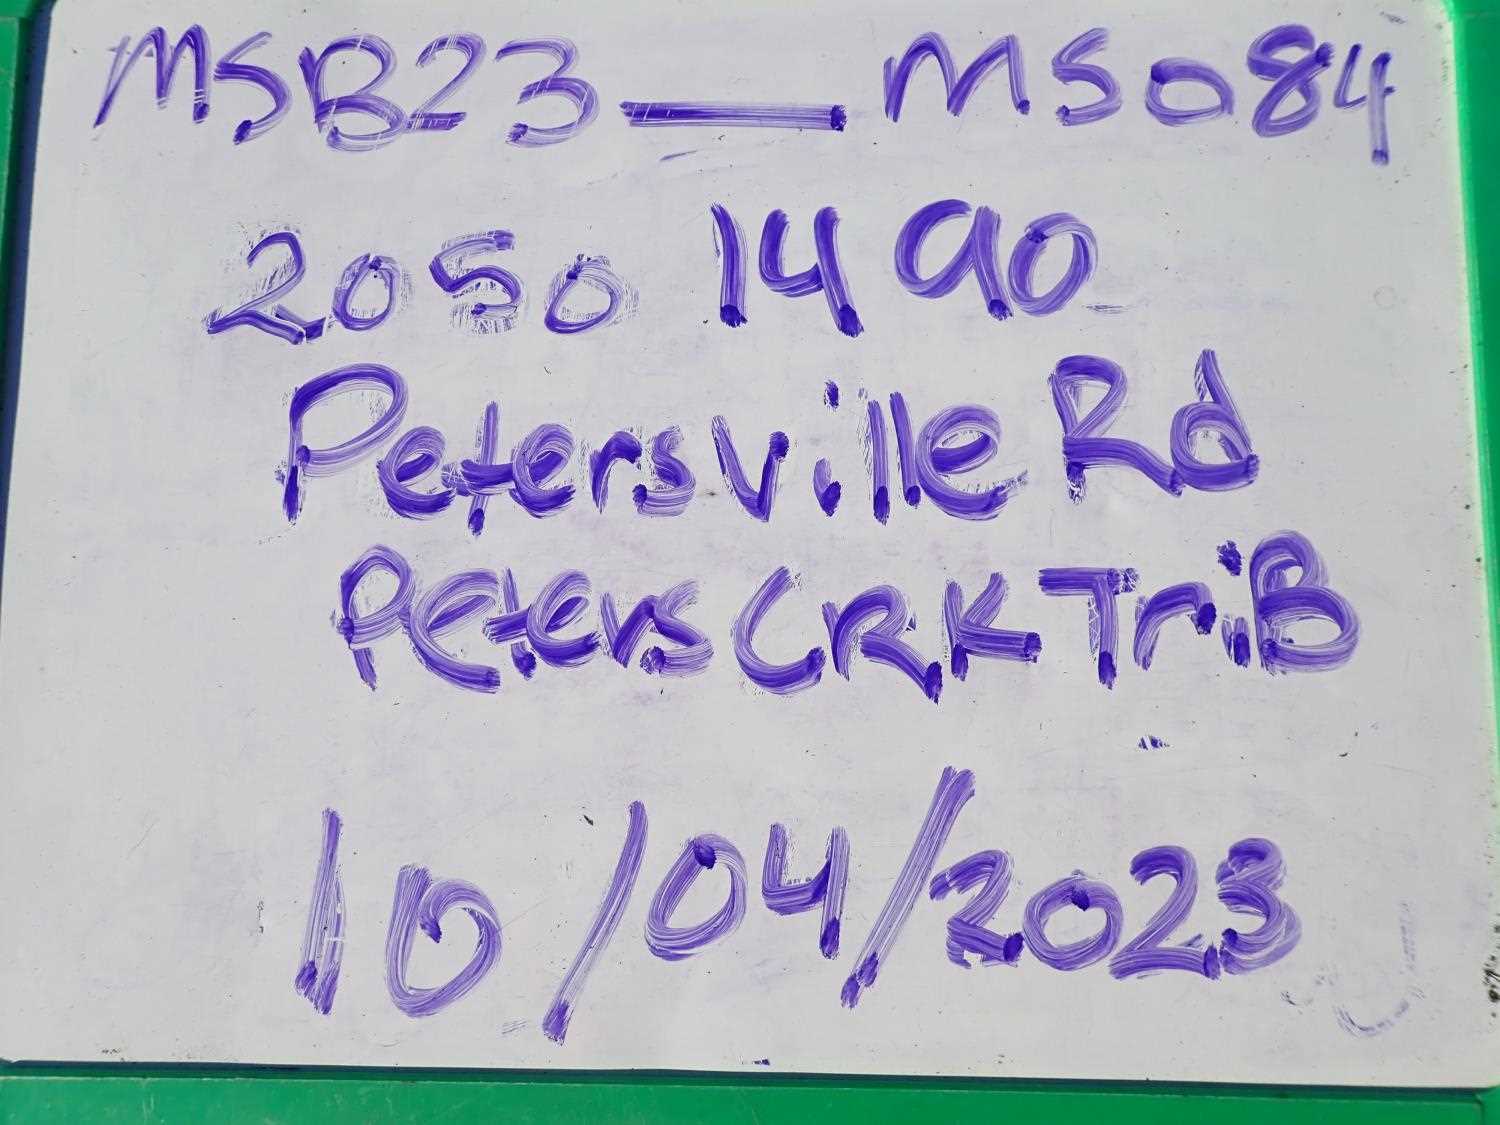 MSB23_MS084
2050 1490
Petersville Rd
Peters CRK TriB
10/04/2023